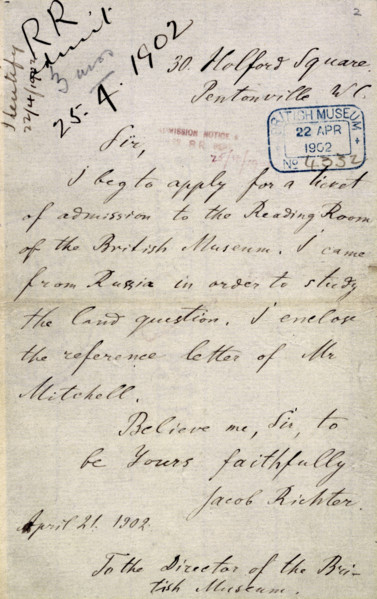 2
Identify
22/4/1902
RR
Admit
3 mos
25.4.1902
30. Holford Square.
Pentonville W.C.
BRITISH MUSEUM
22 APR
1902
No 4332
ADMISSION NOTICE
Sir,
I beg to apply for a ticket
of admission to the Reading Room
of the British Museum. I came
from Russia in order to study
the land question. I enclose
the reference letter of Mr
Mitchell.
Believe me, Sir, to
be Yours faithfully
Jacob Richter.
April 21. 1902.
To the Director of the Bri-
tish Museum.